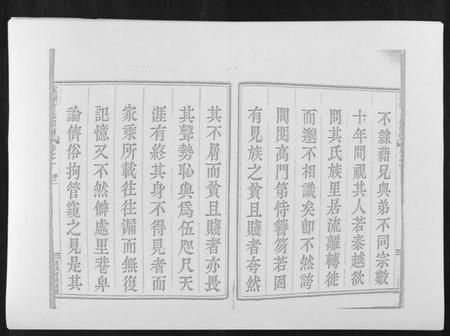 不隸藉兄與弟不同宗數
十年間視其人若秦越欲
問其氏族里居流離轉徙
而邈不相識矣卽不然誇
閥閱高門第恃簪笏若固
有見族之貧且賤者夯然
其不屑而貧且賤者亦畏
其聲勢恥與爲伍咫尺天
涯有終其身不得見者而
家乘所載往往漏而無復
記憶又不然僻處里巷卑
論儕俗拘管窺之見是其